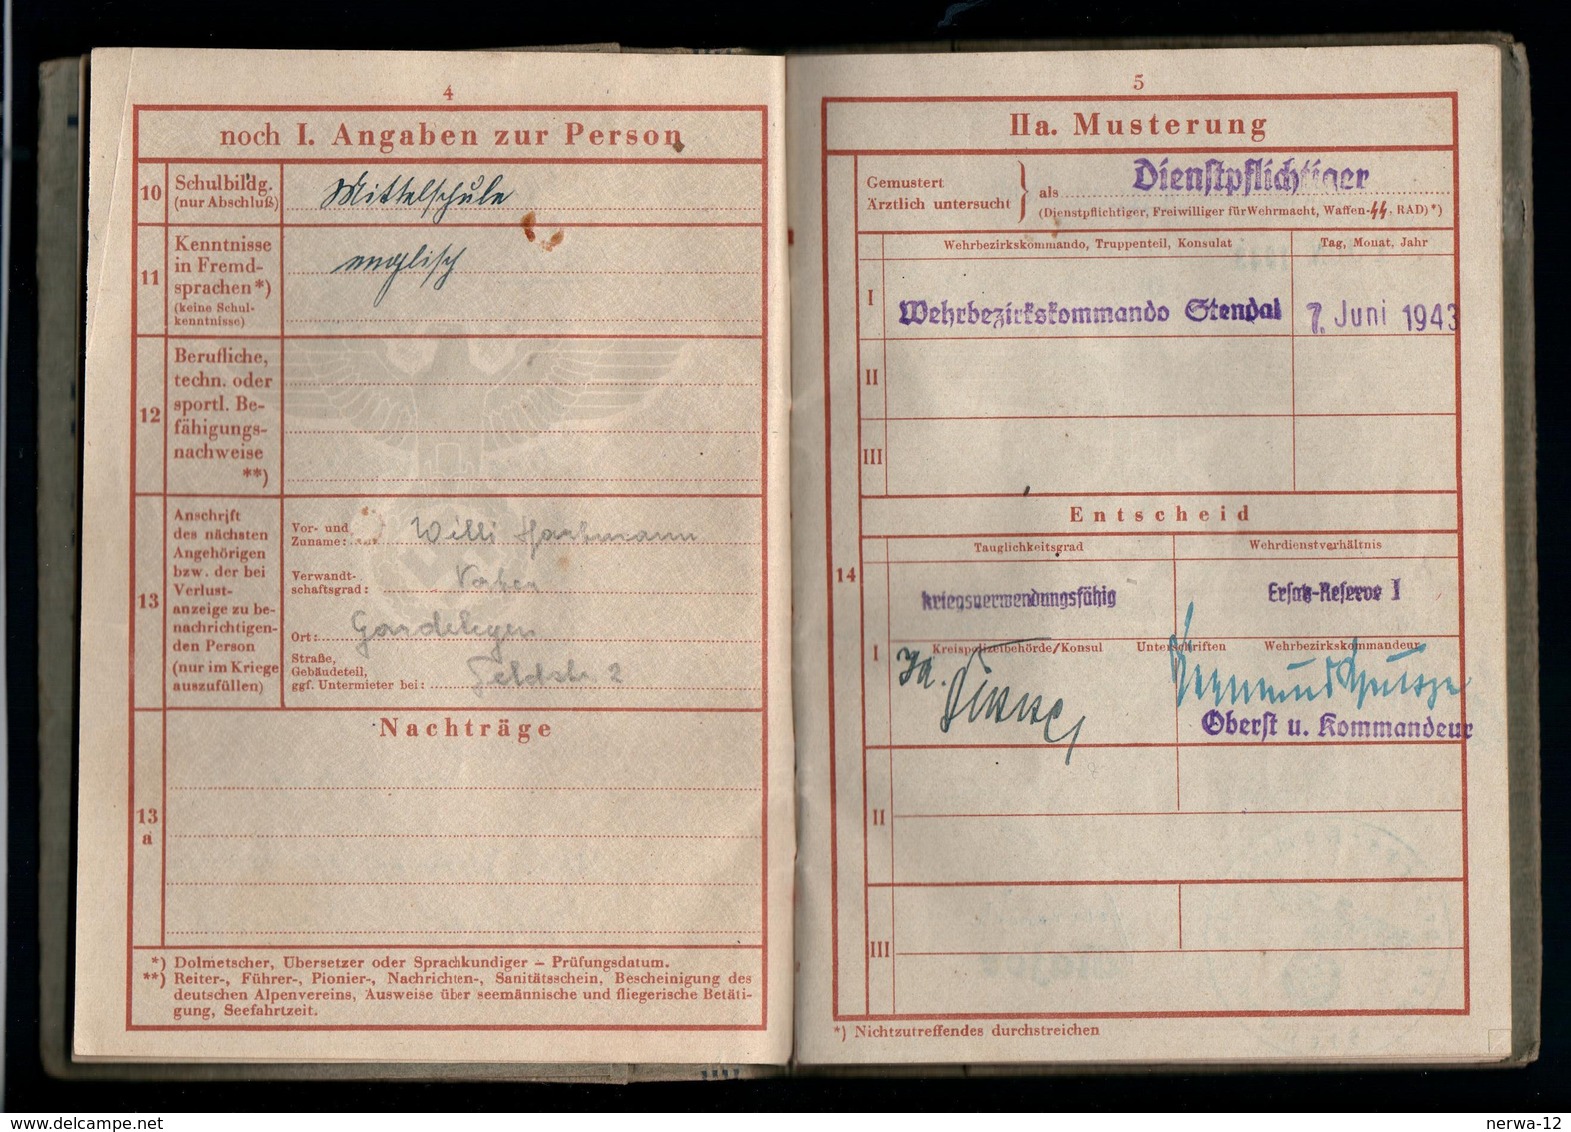 4
noch I. Angaben zur Person
10
Schulbildg.
(nur Abschluß)
Mittelschule
11
Kenntnisse
in Fremd-
sprachen*)
(keine Schul-
kenntnisse)
englisch
12
Berufliche,
techn. oder
sportl. Be-
fähigungs-
nachweise
**)
13
Anschrift
des nächsten
Angehörigen
bzw. der bei
Verlust-
anzeige zu be-
nachrichtigen-
den Person
(nur im Kriege
auszufüllen)
Vor- und
Zuname: Willi Hartmann
Verwandt-
schaftsgrad: Vater
Ort: Gardelegen
Straße,
Gebäudeteil,
ggf. Untermieter bei: Feldstr. 2
Nachträge
13
a
*) Dolmetscher, Übersetzer oder Sprachkundiger – Prüfungsdatum.
**) Reiter-, Führer-, Pionier-, Nachrichten-, Sanitätsschein, Bescheinigung des
deutschen Alpenvereins, Ausweise über seemännische und fliegerische Betäti-
gung, Seefahrtzeit.
5
IIa. Musterung
Gemustert
Ärztlich untersucht
als Dienstpflichtiger
(Dienstpflichtiger, Freiwilliger für Wehrmacht, Waffen-SS, RAD)*)
Wehrbezirkskommando, Truppenteil, Konsulat
Tag, Monat, Jahr
I
Wehrbezirkskommando Stendal
7. Juni 1943
II
III
Entscheid
14
Tauglichkeitsgrad
Wehrdienstverhältnis
kriegsverwendungsfähig
Ersatz-Reserve I
I
Kreispolizeibehörde/Konsul
Unterschriften
Wehrbezirkskommandeur
Oberst u. Kommandeur
II
III
*) Nichtzutreffendes durchstreichen
nerwa-12